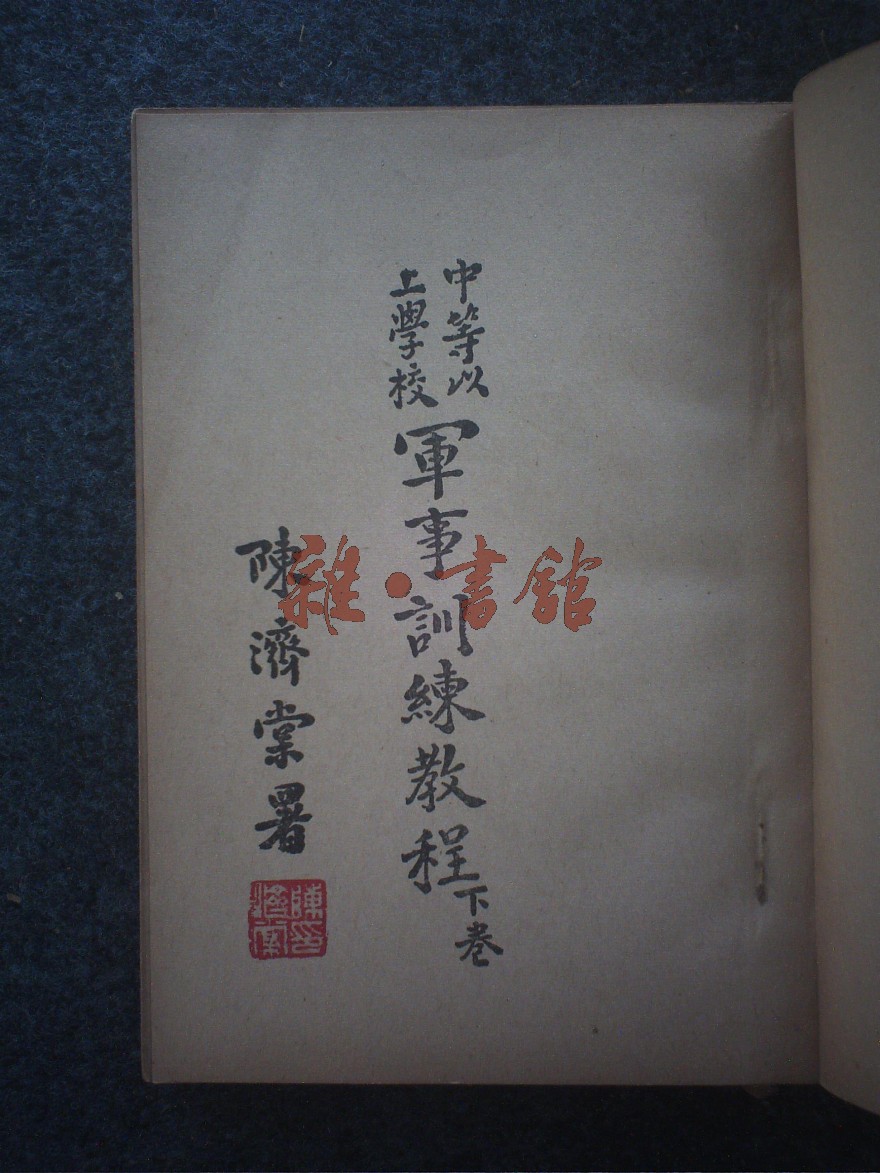 中等以
上學校
軍事訓練教程
下卷
陳濟棠署
陳印濟棠
雜·書館